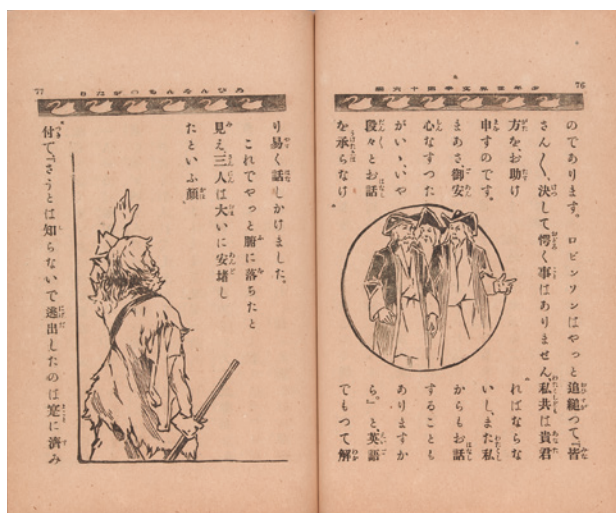 76
のであります。　ロビンソンはやっと追縋つて、『皆
さん〱、決して愕く事はありません、私共は貴君
方を、お助け
申すのです。
まあさ、御安
心なすつた
がいゝ、いや
段々とお話
を承らなけ
ればならな
いし、また私
からもお話
することも
ありますか
ら』と、英語
でもつて解
77
ろびんそんものがたり
り易く話しかけました。
これでやっと腑に落ちたと
見え、三人は大いに安堵し
たといふ顔
付で、『さうとは知らないで逃出したのは寔に済み